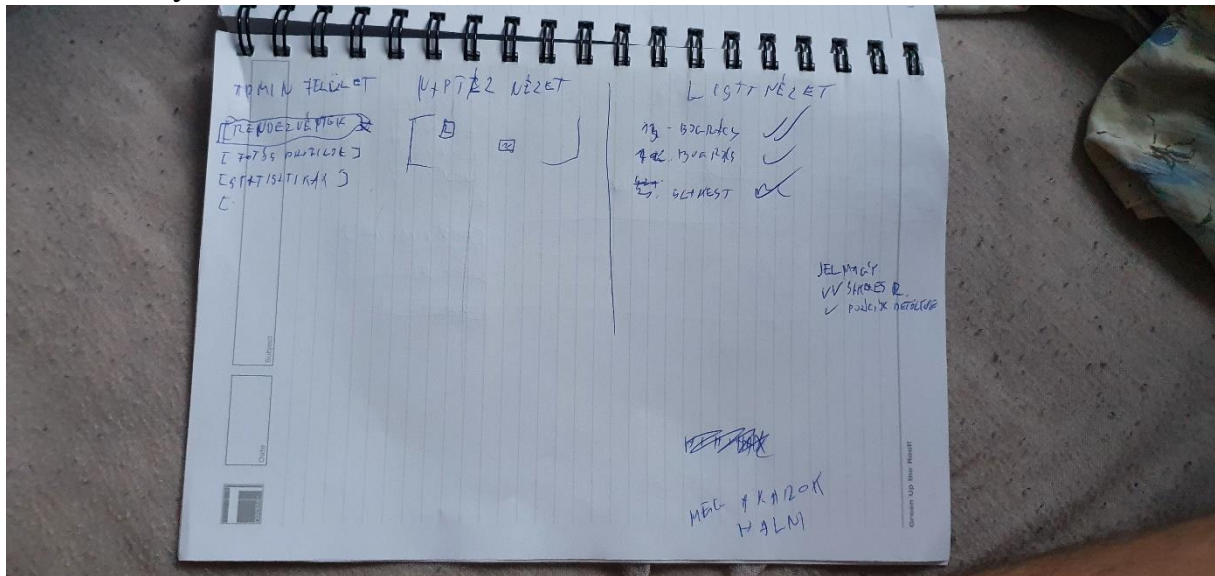 ADMIN FELÜLET
[RENDEZVÉNYEK]
[FOTÓS PROFILOK]
[STATISZTIKÁK]
[
NAPTÁR NÉZET
LISTA NÉZET
13 - BOGRÁCS ✓✓
BOGRÁCS ✓
JELMAGY
✓✓ SIKERES
✓ FELTÖLTVE
MEG AKAROK
HALNI
Subject
Date
Green Up the Roof!